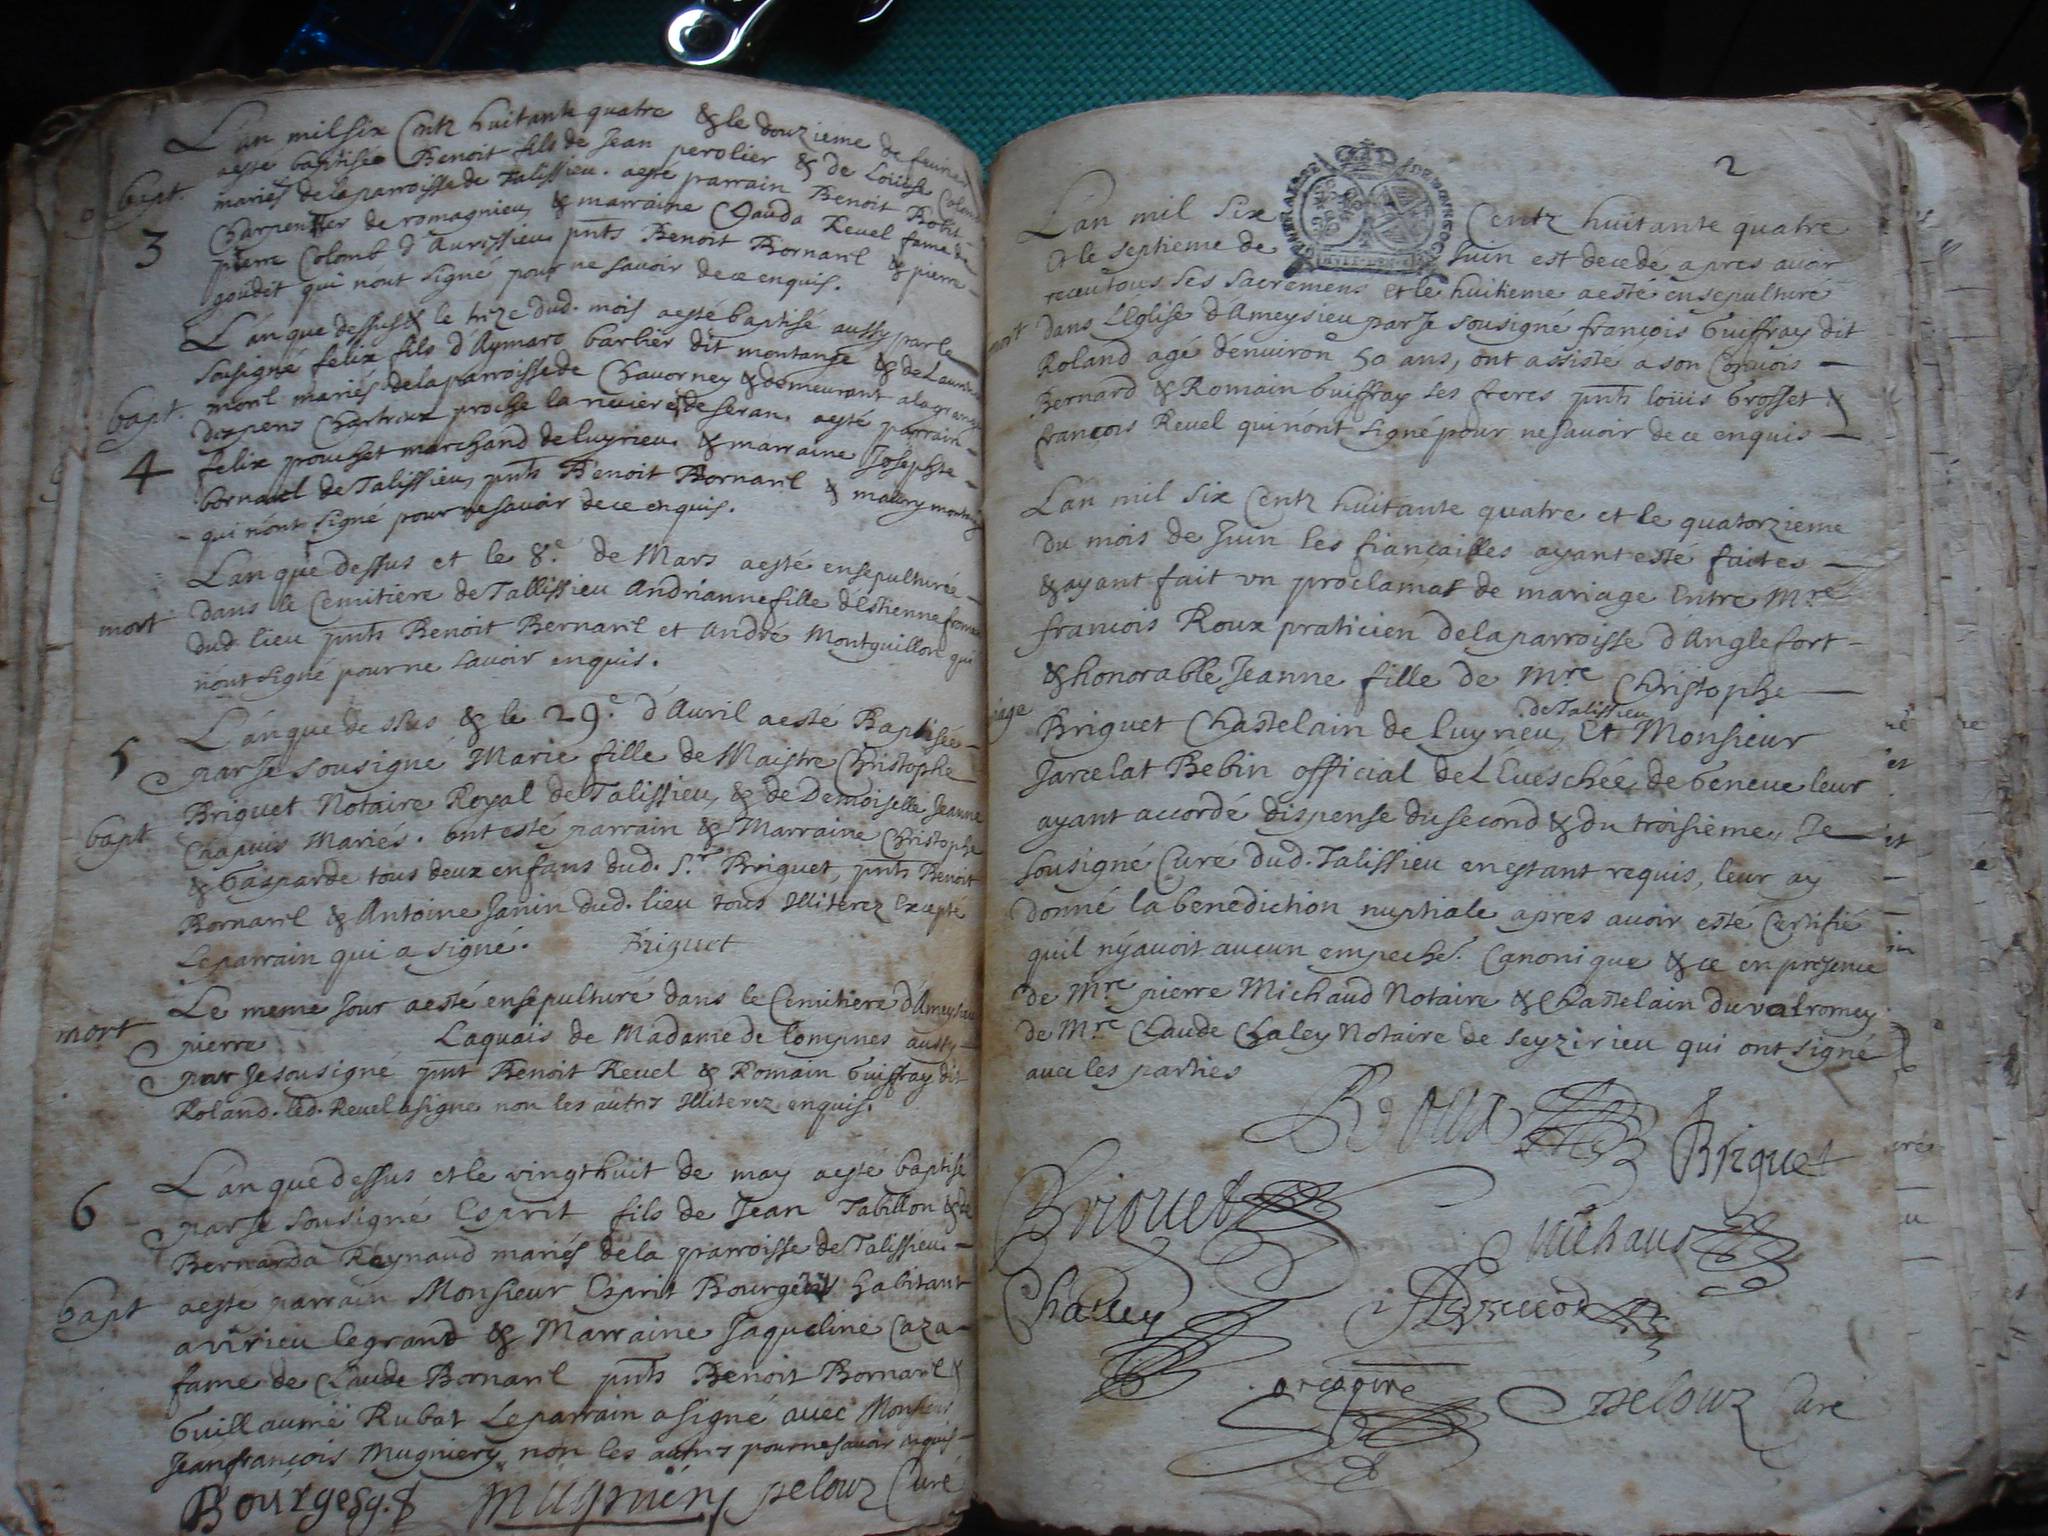 L'an mil six Centz huitante quatre & le douzieme de feurier
aesté baptisée Benoit fils de Jean perolier & de Loüise Colomb
bapt. mariés de la parroisse de Talissieu. aesté parrain Benoit Robit
3 Charpentier de romagnieu, & marraine Clauda Reuel fame de
pierre Colomb d'Aurissieu pnts Benoit Bornard & pierre
goudet qui n'ont signé pour ne savoir de ce enquis.
L'an que dessus & le treze dud. mois aesté baptisé aussy par le
sousigné felix fils d'Aymard barlier dit montange & de Laurence
bapt. morel mariés de la parroisse de Chavorney & demeurant a la grange
des pens Chartreux proche la riuiere de seran. aesté parrain
4 felix pouchet marchand de luyrieu. & marraine Josephte
bornard de Talissieu, pnts Benoit Bornard & maury
qui n'ont signé pour ne sauoir de ce enquis.
L'an que dessus et le 8.e de Mars aesté ensepulturée
dans le Cemitiere de Tallissieu Andrianne fille d'Estienne
mort dud. lieu pnts Benoit Bernard et André Montguillon qui
n'ont signé pour ne savoir enquis.
L'an que dessus & le 29.e d'Auril aesté Baptisée
5 par Je sousigné Marie fille de Maistre Christophe
Briguet Notaire Royal de Talissieu, & de Demoiselle Jeanne
bapt Chapuis Mariés. ont esté parrain & Marraine Christophe
& Gasparde tous deux enfans dud. S.r Briguet, pnts Benoit
Bornard & Antoine Janin dud. lieu tous Illiterez Excepté
Le parrain qui a signé. Briguet
Le meme Jour aesté ensepulturé dans le Cemitiere d'Ameysieu
mort pierre Laquais de Madame de Lompnes
par Je sousigné pnt Benoit Reuel & Romain Guiffray dit
Roland. led. Reuel a signé non les autres Illiterez enquis.
L'an que dessus et le vingt huit de may aesté baptisé
6 par Je sousigné Esprit fils de Jean Tabillon & de
Bernarda Raynaud mariés de la parroisse de Talissieu.
bapt aesté parrain Monsieur Esprit Bourgeois habitant
a virieu le grand & Marraine Jaqueline Caza
fame de Claude Bornard pnts Benoit Bornard &
Guillaume Rubat Le parrain a signé avec Monsieur
Jean françois Mugniery non les autres pour ne savoir enquis
Bourgeys Mugniery pelouz Curé
2
L'an mil six Centz huitante quatre
et le septieme de Juin est decedé apres auoir
receu tous ses sacremens et le huitieme aesté ensepulture
mort dans L'Eglise d'Ameysieu par Je sousigné françois Guiffray dit
Roland agé d'enuiron 50 ans, ont assisté a son Conuois
Bernard & Romain Guiffray ses freres pnts loüis Grosset &
françois Reuel qui n'ont signé pour ne sauoir de ce enquis
L'an mil six Centz huitante quatre et le quatorzieme
du mois de Juin les fiancailles ayant esté faites
& ayant fait un proclamat de mariage Entre Mre
françois Roux praticien de la parroisse d'Anglefort
& honorable Jeanne fille de Mre Christophe
de Talissieu
iage Briguet Chastelain de luyrieu, Et Monsieur
Jarcelat Bebin official de L'Eueschée de Geneue leur
ayant accordé dispense du second & du troisieme, Je
sousigné Curé dud. Talissieu en estant requis, leur ay
donné la benediction nuptiale apres auoir esté Certifié
qu'il n'y auoit aucun empeche. Canonique & ce en presence
de Mre pierre Michaud Notaire & Chastelain du valromey
de Mre Claude Chaley Notaire de seyzirieu qui ont signé
auec les parties
Roux Briguet
Briguet Michaud
Chaley
pelouz Curé